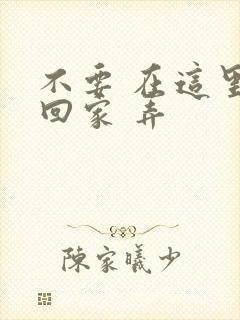 不要 在這里
回家 弄
陳家曦少